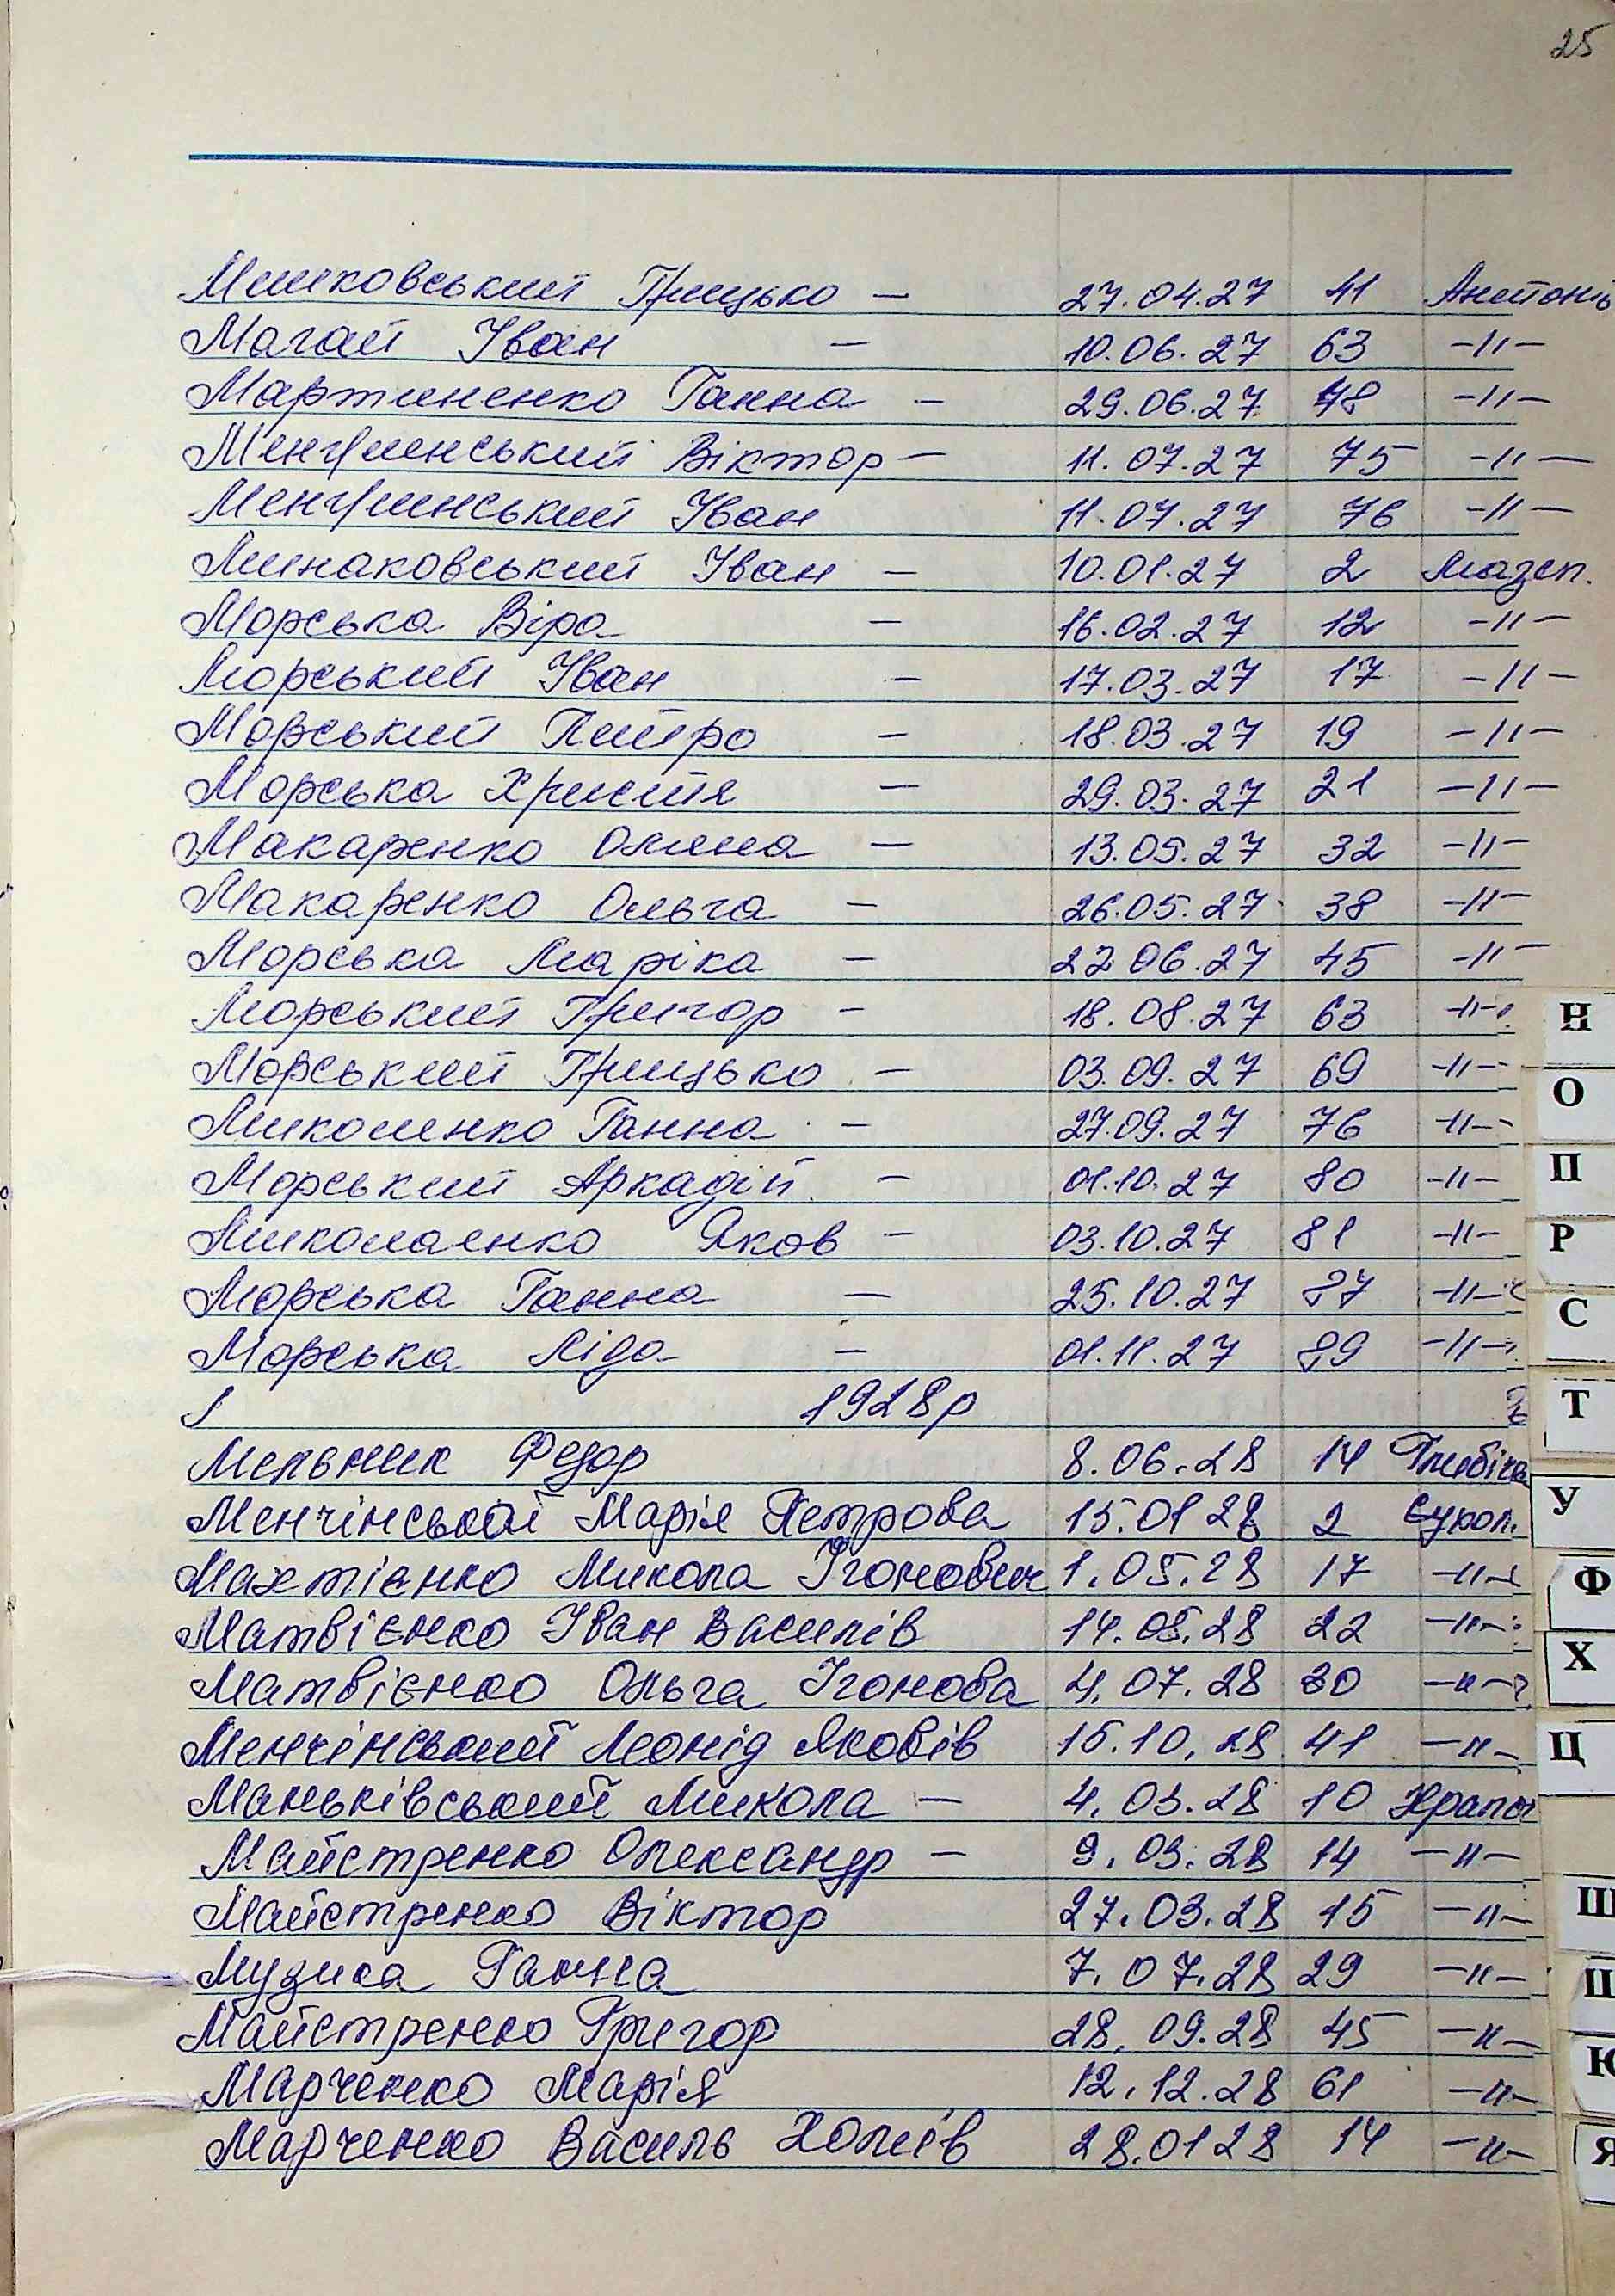 25
Мишковський Грицько — 27.04.27 41 Антонів
Магай Іван — 10.06.27 63 -//-
Мартиненко Ганна — 29.06.27 48 -//-
Менчинський Віктор — 11.07.27 75 -//-
Менчинський Іван 11.07.27 76 -//-
Минаковський Іван — 10.01.27 2 Мазеп.
Морська Віра — 16.02.27 12 -//-
Морський Іван — 17.03.27 17 -//-
Морський Питро — 18.03.27 19 -//-
Морська Христя — 29.03.27 21 -//-
Макаренко Олена — 13.05.27 32 -//-
Макаренко Ольга — 26.05.27 38 -//-
Морська Маріка — 22 06.27 45 -//-
Морський Григор — 18.08.27 63 -//-
Морський Грицько — 03.09.27 69 -//-
Миколенко Ганна — 27.09.27 76 -//-
Морський Аркадій — 01.10.27 80 -//-
Миколаєнко Яков — 03.10.27 81 -//-
Морська Ганна — 25.10.27 87 -//-
Морська Ліда — 01.11.27 89 -//-
1928р
Мельник Федор 8.06.28 14
Менчінськой Марія Петрова 15.01 28 2 Сукол.
Махтієнко Микола Ігонович 1.05.28 17 -//-
Матвієнко Іван Василів 14.05.28 22 -//-
Матвієнко Ольга Ігонова 4.07.28 30 -//-
Менчінський Леонід Яковів 15.10.28 41 -//-
Маньківський Микола — 4.03.28 10
Майстренко Олександр — 9.03.28 14 -//-
Майстренко Віктор 27.03.28 15 -//-
Музика Ганна 7.07.28 29 -//-
Майстренко Григор 28.09.28 45 -//-
Марченко Марія 12.12.28 61 -//-
Марченко Василь 28.01 28 14 -//-
Н
О
П
Р
С
Т
У
Ф
Х
Ц
Ш
Ю
Я